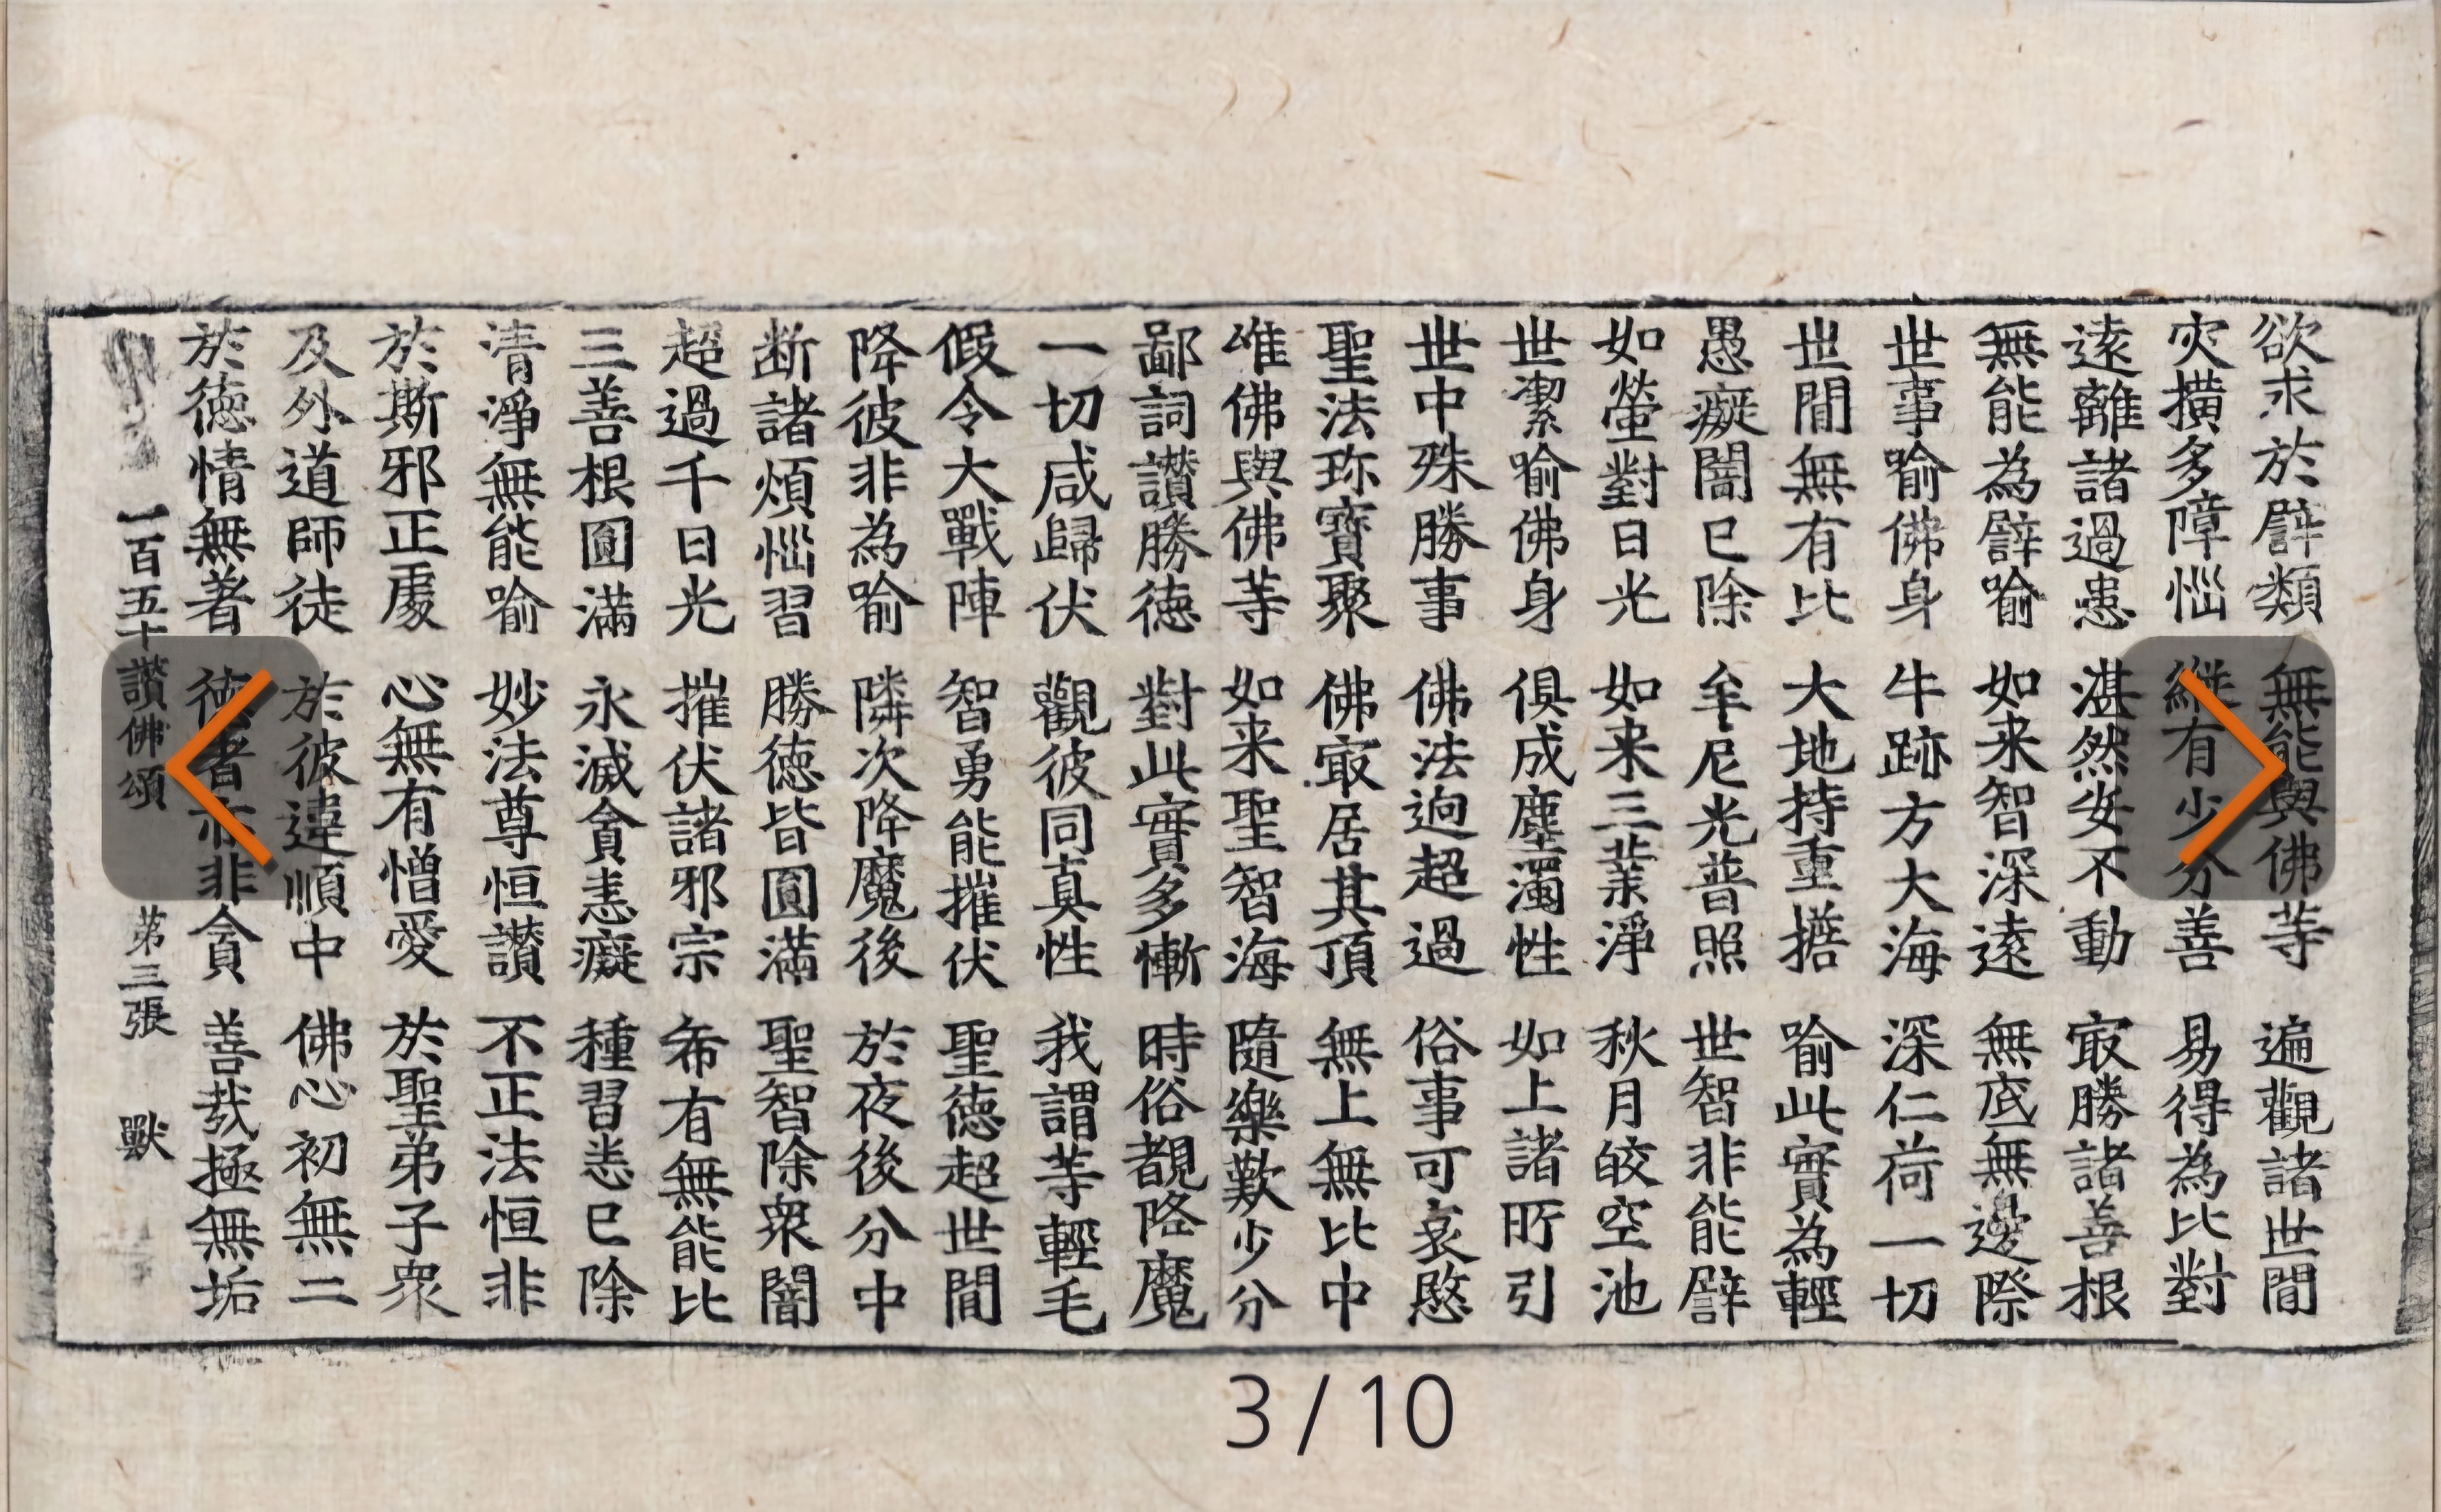 欲求於譬類 無能與佛等 遍觀諸世間
灾橫多障惱 縱有少分善 易得為比對
遠離諸過患 湛然安不動 㝡勝諸善根
無能為譬喻 如来智深遠 無底無邊際
世事喻佛身 牛跡方大海 深仁荷一切
世間無有比 大地持重擔 喻此實為輕
愚癡闇已除 牟尼光普照 世智非能譬
如螢對日光 如来三業淨 秋月皎空池
世潔喻佛身 俱成塵濁性 如上諸所引
世中殊勝事 佛法逈超過 俗事可哀愍
聖法珎寶聚 佛㝡居其頂 無上無比中
唯佛與佛等 如来聖智海 隨樂歎少分
鄙詞讃勝德 對此實多慚 時俗覩降魔
一切咸歸伏 觀彼同真性 我謂等輕毛
假令大戰陣 智勇能摧伏 聖德超世間
降彼非為喻 隣次降魔後 於夜後分中
断諸煩惱習 勝德皆圓滿 聖智除衆闇
超過千日光 摧伏諸邪宗 希有無能比
三善根圓滿 永滅貪恚癡 種習悉已除
清淨無能喻 妙法尊恒讃 不正法恒非
於斯邪正處 心無有憎愛 於聖弟子衆
及外道師徒 於彼違順中 佛心初無二
於德情無著 德者亦非貪 善哉極無垢
一百五十讃佛頌 苐三張 獸
3/10